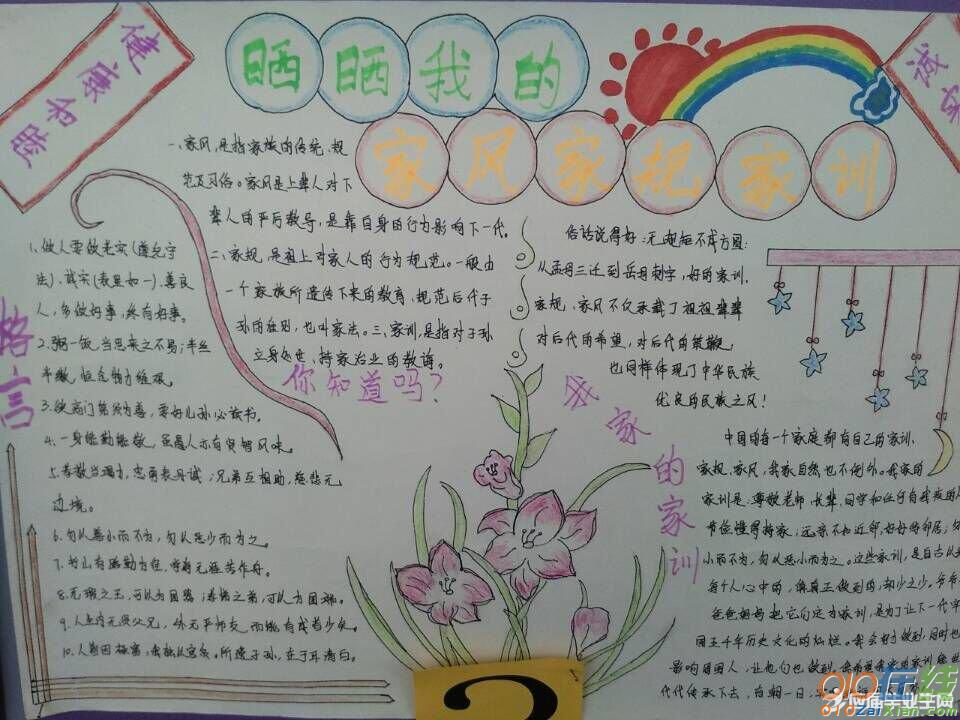 健康和睦
晒晒我的
家风家规家训
诚实
一、家风,是指家族的传统、规
范及习俗。家风是上辈人对下
辈人的严厉教导,是靠自身的行为影响下一代。
二、家规,是祖上对家人的行为规范。一般由
一个家族所遗传下来的教育、规范后代子
孙的准则,也叫家法。三、家训,是指对子孙
立身处世、持家治业的教诲。
你知道吗?
格言
1、做人要做老实(遵纪守
法)、诚实(表里如一)、善良
人,多做好事,终有好事。
2、粥一饭,当思来之不易;半丝
半缕,恒念物力维艰。
3、欲高门第须为善,要好儿孙必读书。
4、一身能勤能敬,虽愚人亦有贤智风味。
5、孝敬当竭力,忠勇表丹诚;兄弟互相助,慈悲无
边境。
6、勿以善小而不为,勿以恶少而为之。
7、书山有路勤为径,学海无涯苦作舟。
8、无瑕之玉,可以为国器;孝悌之弟,可以为国瑞。
9、人生内无贤父兄,外无严师友,而能有成者少矣。
10、所遗子孙,在于清白。
俗话说得好:无规矩不成方圆:
从孟母三迁到岳母刺字,好的家训、
家规、家风不仅承载了祖祖辈辈
对后代的希望,对后代的鞭策,
也同样体现了中华民族
优良的民族之风!
我家的家训
中国的每一个家庭都有自己的家训、
家规、家风,我家自然也不例外。我家的
家训是:尊敬老师、长辈、同学和任何
节俭懂得持家;远亲不如近邻,好好待邻居;
小而不为,勿以恶小而为之。这些家训,是自古以来
每个人心中的,但真正做到的,却少之少。爷爷
爸爸妈妈把它们定为家训,是为了让下一代
国五千年历史文化的灿烂。我会好好做到,同时也
影响周围人,让他们也做到。
代代传承下去,有朝一日,
?
010在线
应届毕业生网
010zaiXian.com